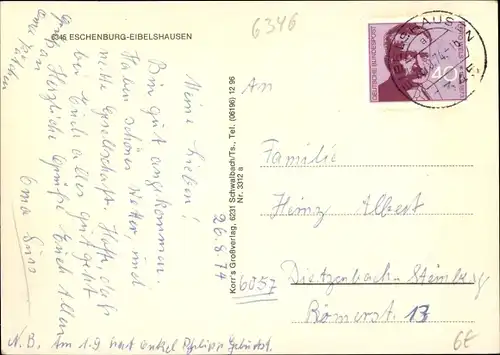 6346 ESCHENBURG-EIBELSHAUSEN
6346
Meine Lieben!
26.8.74
Bin gut angekommen.
Haben schönes Wetter, und
nette Gesellschaft. Hoffe, daß
bei Euch alles gut geht
Herzliche Grüße Euch Allen
Oma
N.B. Am 1.9 hat Onkel Philipp Geburtst.
Korr's Großverlag, 6231 Schwalbach/Ts., Tel. (06196) 12 96
Nr. 3312 a
DEUTSCHE BUNDESPOST
40
An
Familie
Heinz Albert
6057 Dietzenbach-Steinberg
Bömerst. 13
6E